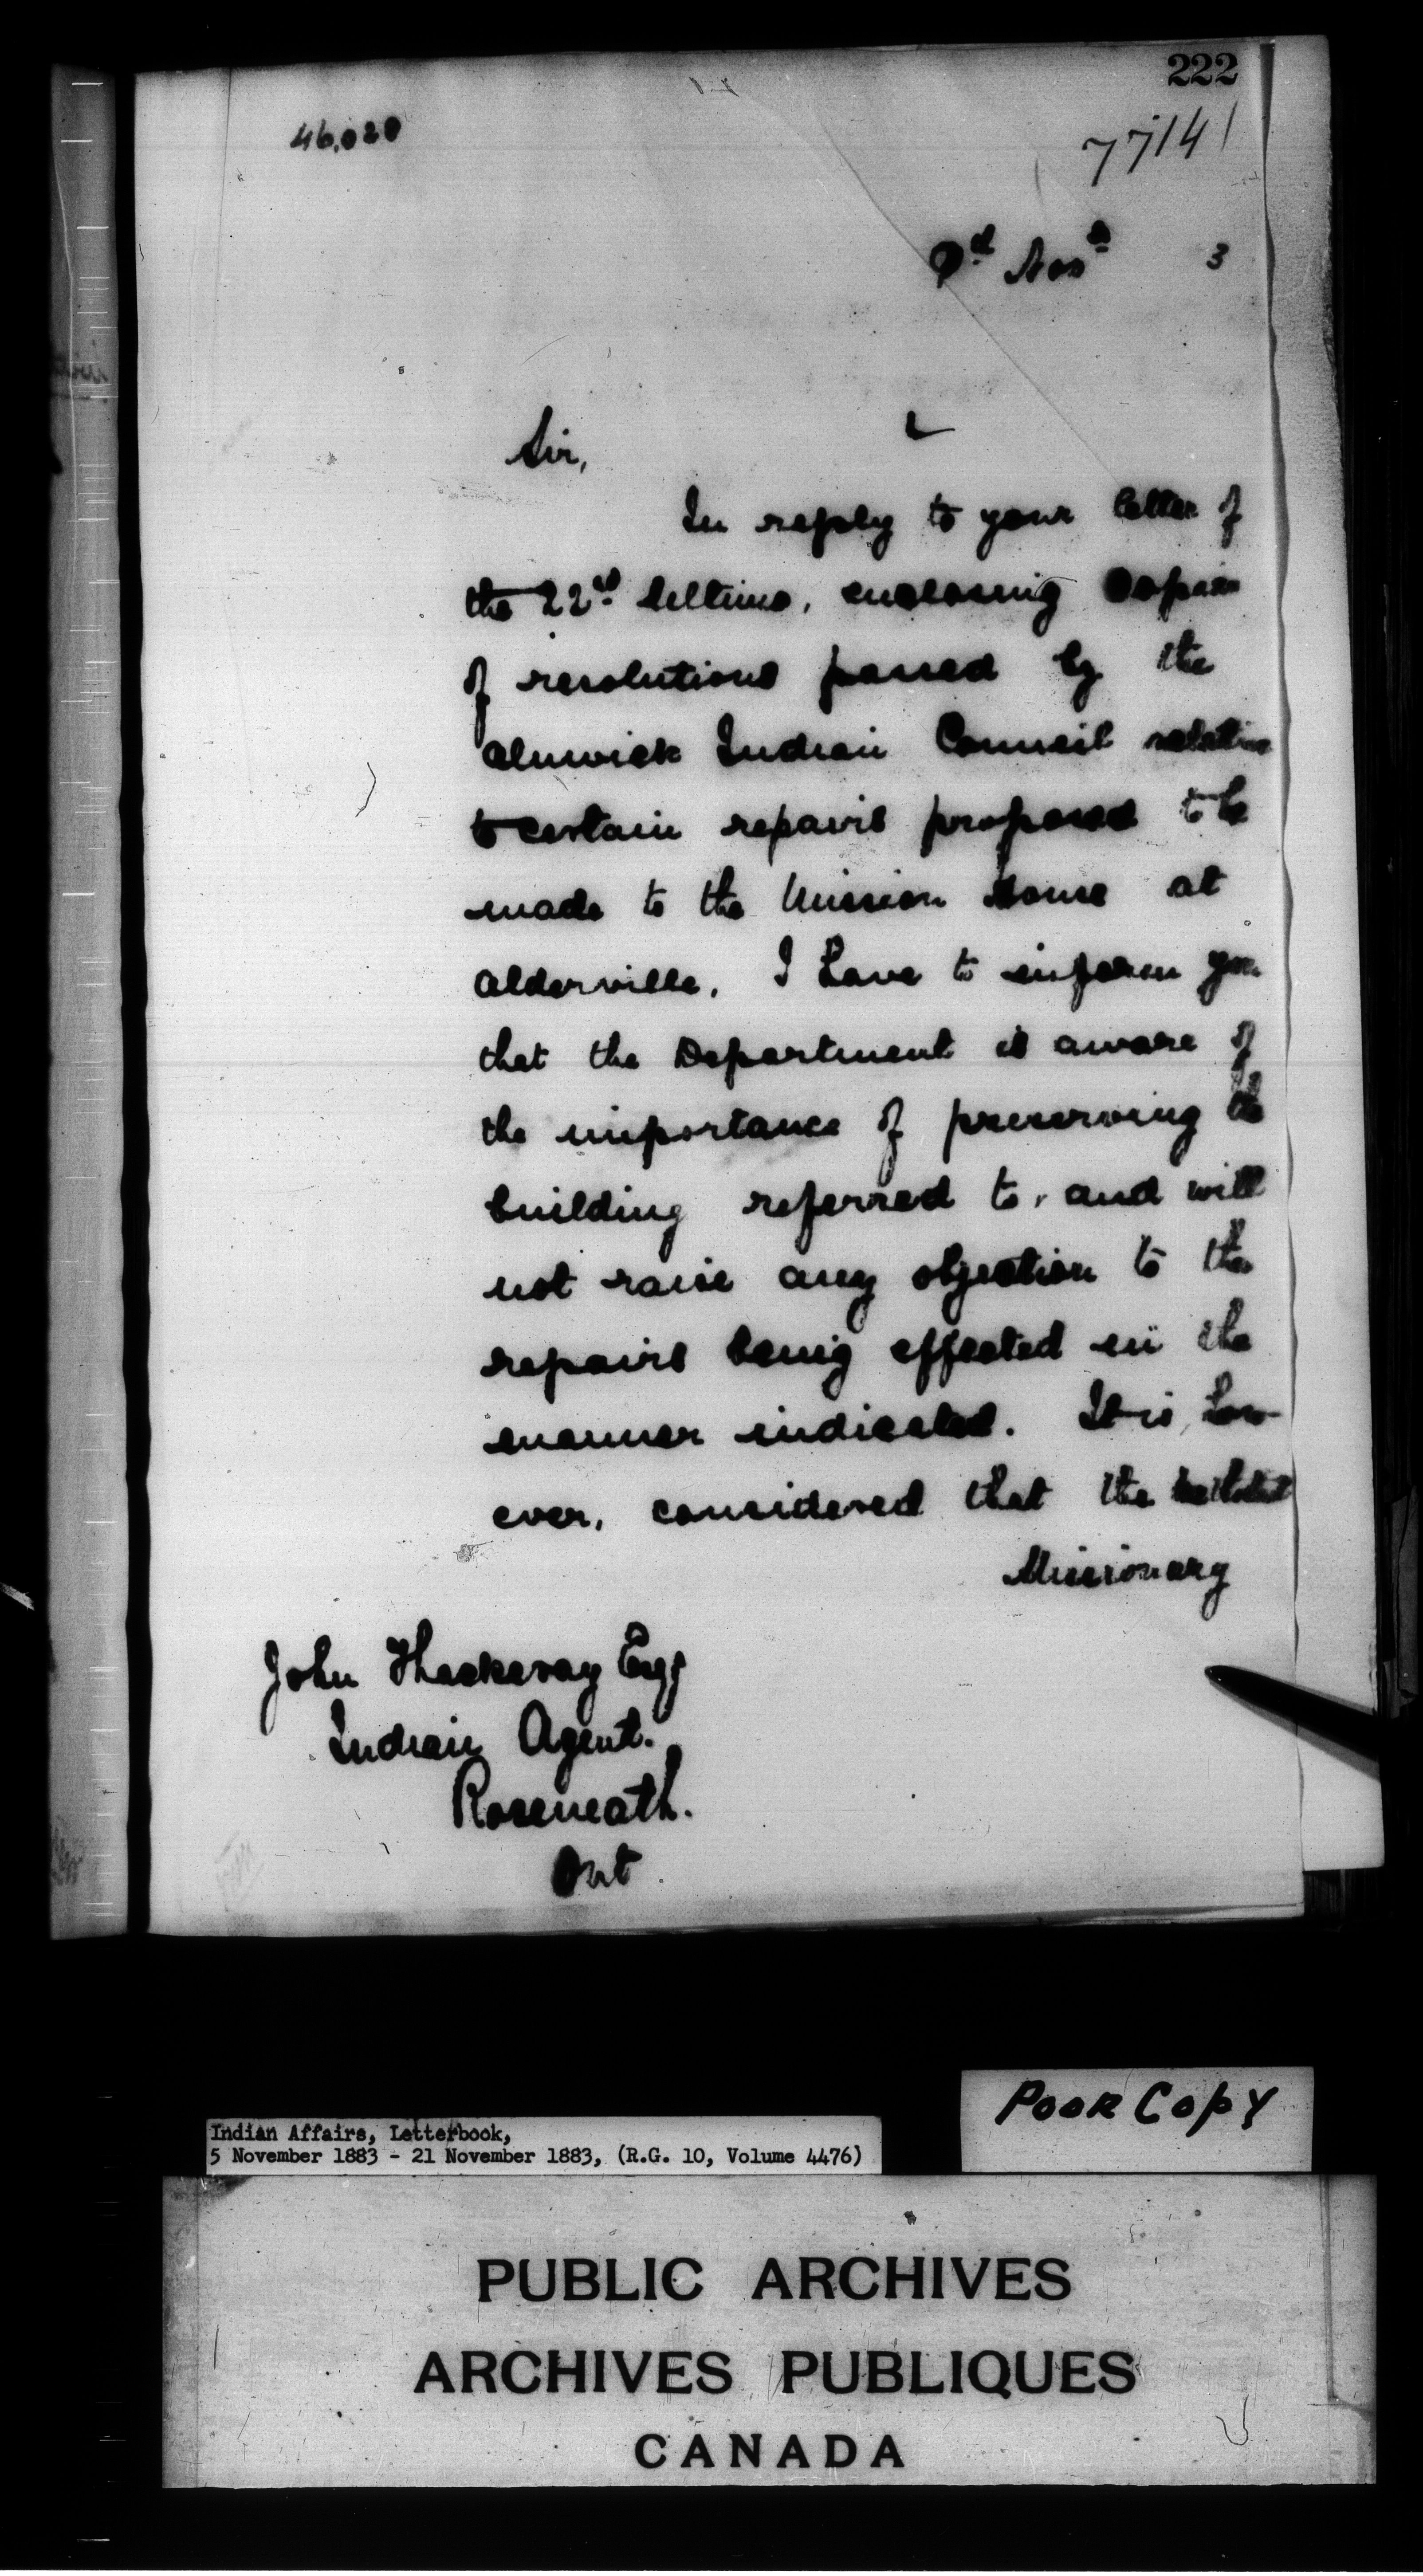 222
46,020
77141
9th Nov 3
Sir,
In reply to your letter of
the 22nd Ultimo, enclosing Copies
of resolutions passed by the
Alnwick Indian Council relative
to certain repairs proposed to be
made to the Mission House at
Alderville, I have to inform you
that the Department is aware of
the importance of preserving the
building referred to, and will
not raise any objection to the
repairs being effected in the
manner indicated. It is, how-
ever, considered that the
Missionary
John Thackeray Esq
Indian Agent.
Roseneath.
Ont.
Poor Copy
Indian Affairs, Letterbook,
5 November 1883 - 21 November 1883, (R.G. 10, Volume 4476)
PUBLIC ARCHIVES
ARCHIVES PUBLIQUES
CANADA